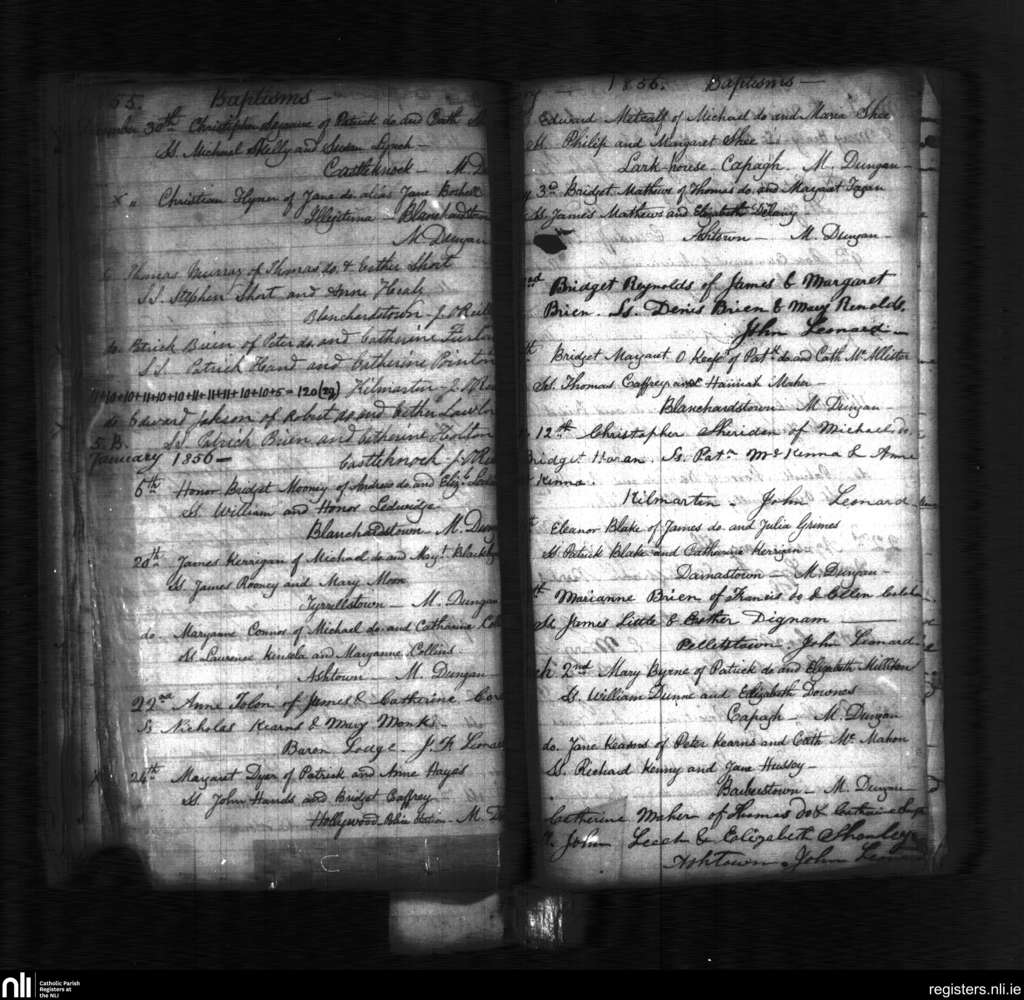 55. Baptisms —
30th Christopher of Patrick do. and Cath
Ss. Michael Skelly and Susan Lynch —
Castleknock — M. D
x " Christian Flynn of Jane do alias Jane
Illigitima — Blanchardstown
M. Dungan
Thomas Murray of Thomas do. & Esther Short
Ss. Stephen Short and Anne
Blanchardstown — J.
do. Patrick Brien of Peter do. and Catherine
Ss. Patrick Heand and Catherine
11+10+10+11+10+10+11+11+11+10+10+5 = 120 Kilmartin — J.
do Edward of Robert do. and Esther Lawlor
S. B. Ss. Patrick Brien and Catherine
January 1856 — Castleknock — J.
6th Honor Bridget Mooney of Andrew do and Eliz.
Ss. William and Honor Ledwidge
Blanchardstown — M. Dung
20th James Kerrigan of Michael do and Mayt.
Ss. James Rooney and Mary Moon
Tyrrellstown — M. Dungan
do. Maryanne Connor of Michael do. and Catharine
Ss Laurence Kinsela and Maryanne Collins
Ashtown M. Dungan
22nd Anne Tolon of James & Catherine
Ss Nicholas Kearns & Mary Monks.
Baron Lodge. J. Leonard
24th Margaret Dyer of Patrick and Anne Hayes
Ss John Hands and Bridget Caffrey
Hollywood Police Station — M. D
1856. Baptisms —
Edward Metcalf of Michael do and Maria Shee
Philip and Margaret Shee
Lark-house — Capagh. M. Dungan
3d Bridget Mathews of Thomas do. and Margaret Fagan
Ss James Mathews and Elizabeth Delany
Ashtown — M. Dungan —
Bridget Reynolds of James & Margaret
Brien. Ss. Denis Brien & Mary Renolds.
John Leonard —
Bridget Margaret O Keefe of Patk. do and Cath Mc
Ss. Thomas Caffrey and Hannah Maher —
Blanchardstown — M Dungan —
12th Christopher Sheridan of Michael do.
Bridget Horan. Ss. Patn. McKenna & Anne
Kenna.
Kilmartin — John Leonard
Eleanor Blake of James do. and Julia Grimes
Ss Patrick Blake and Catharine Kerrigan
Damastown — M. Dungan —
Marianne Brien of Francis do & Ellen
Ss James Little & Esther Dignam —
Pelletstown. John Leonard
2nd Mary Byrne of Patrick do and Elizabeth
Ss. William Dunne and Elizabeth Downes
Capagh — M. Dungan
do. Jane Kearns of Peter Kearns and Cath Mc Mahon
Ss. Richard Kenny and Jane Hussey —
Baberstown — M. Dungan —
Catherine Maher of Thomas do & Catharine
John Leech & Elizabeth Shanley
Ashtown John
nli Catholic Parish
Registers at
the NLI
registers.nli.ie